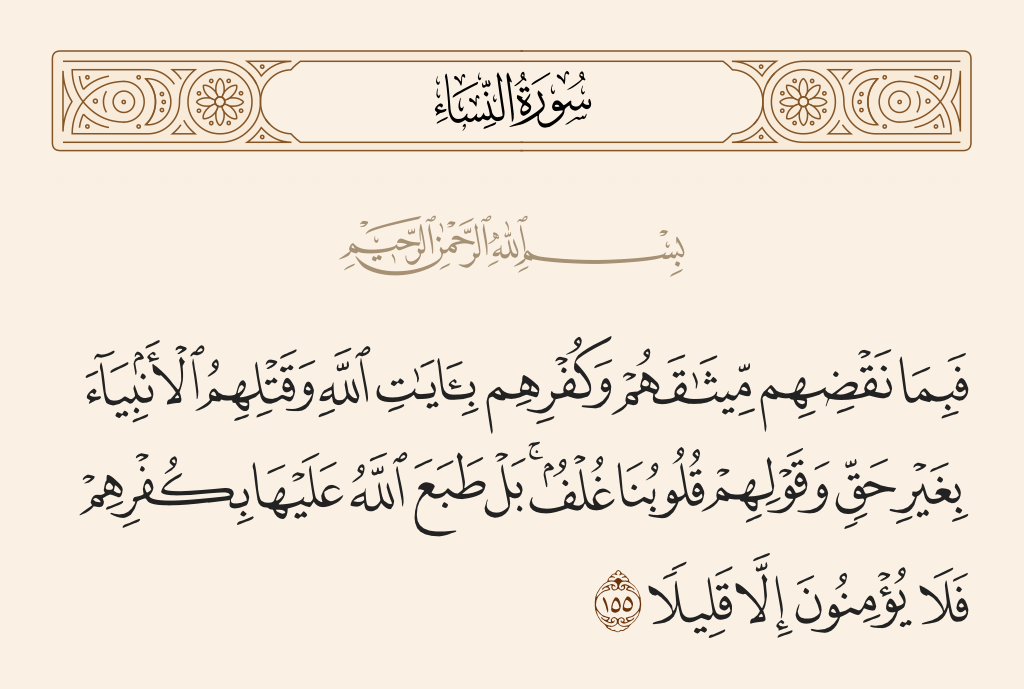 سُورَةُ النِّسَاءِ
بِسْمِ ٱللَّهِ ٱلرَّحْمَٰنِ ٱلرَّحِيمِ
فَبِمَا نَقْضِهِم مِّيثَٰقَهُمْ وَكُفْرِهِم بِـَٔايَٰتِ ٱللَّهِ وَقَتْلِهِمُ ٱلْأَنۢبِيَآءَ
بِغَيْرِ حَقٍّ وَقَوْلِهِمْ قُلُوبُنَا غُلْفٌۢ ۚ بَلْ طَبَعَ ٱللَّهُ عَلَيْهَا بِكُفْرِهِمْ
فَلَا يُؤْمِنُونَ إِلَّا قَلِيلًا ١٥٥